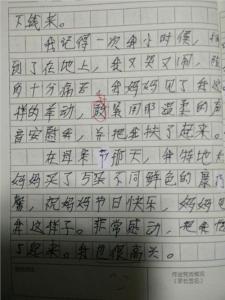 下钱来。
我记得一次我小时候,
到了在地上,我又哭又闹,
月十分痛苦,我妈妈见了我
样的举动,用那温柔的声
音安慰我,并把我扶了起来。
在母亲节那天,我特地
妈妈买了5朵不同颜色的康乃
馨,祝妈妈节日快乐,妈妈见
我这样子。非常感动,把我
了起来。我也很高兴。
作业完成情况
(家长签名)